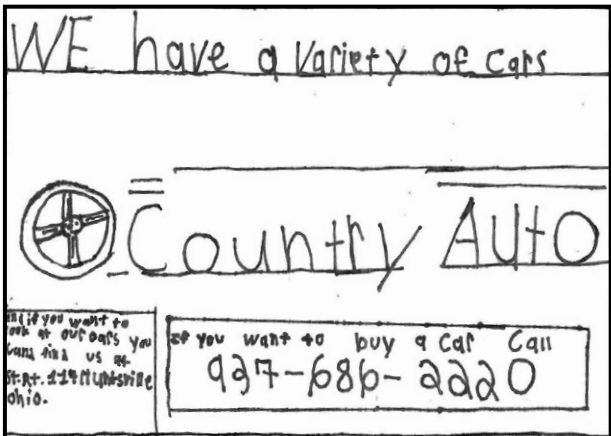 WE have a Variety of Cars
Country Auto
and if you want to
look at our cars you
cand find us at
St.Rt. 117 Huntsville
Ohio.
If you want to buy a Car Call
937-686-2220